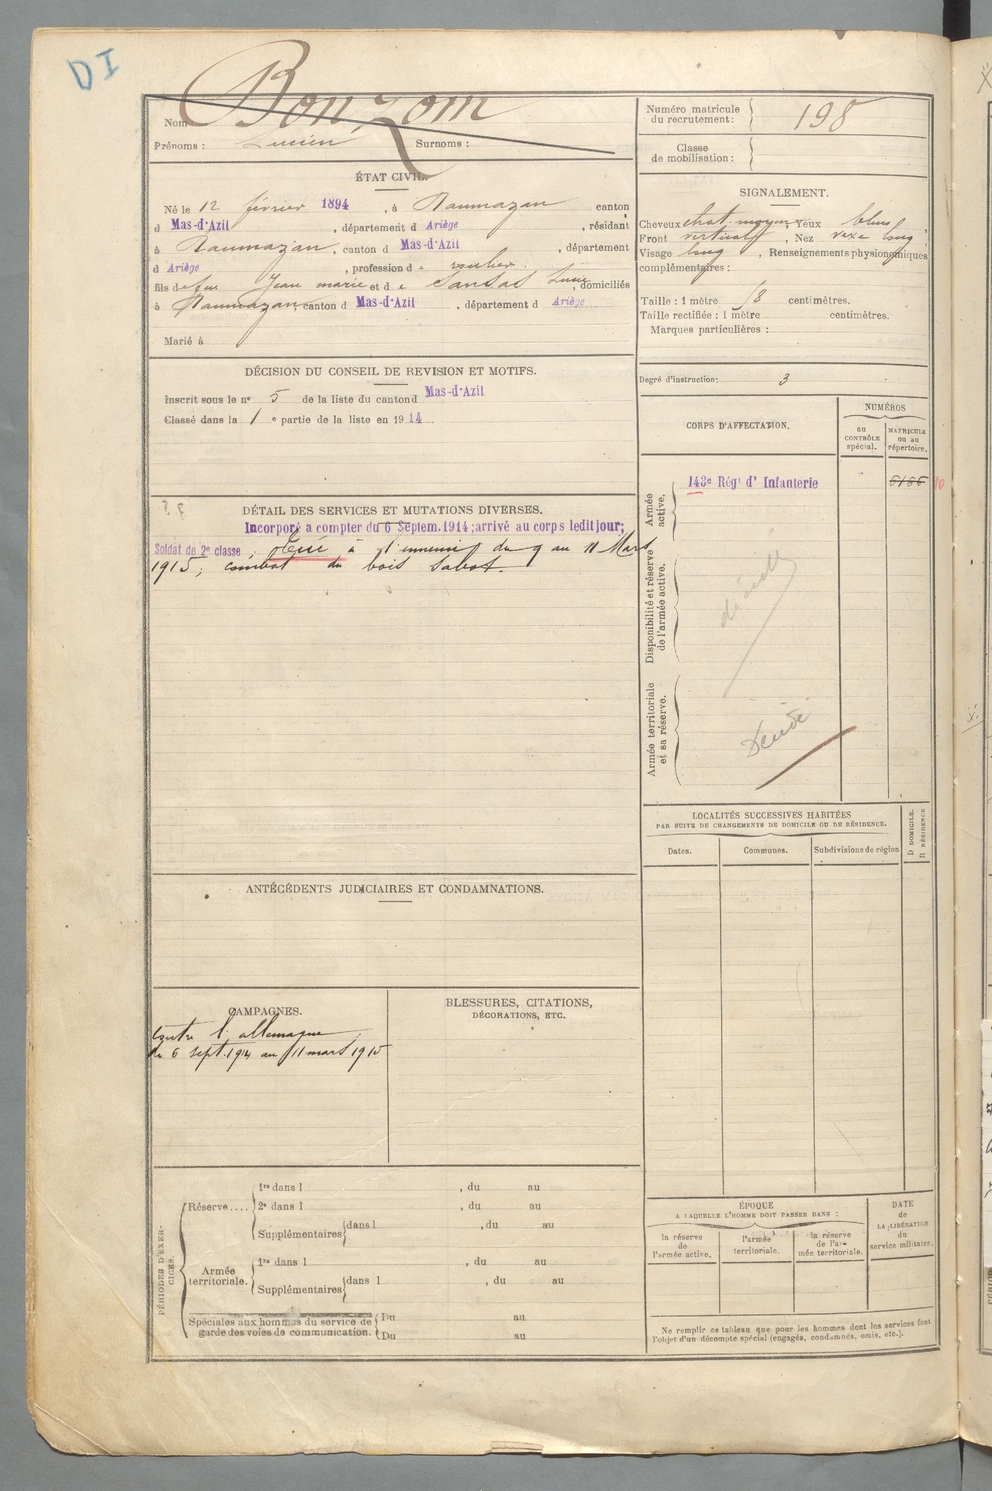 DI
Nom Bonzom
Prénoms : Lucien Surnoms :
Numéro matricule du recrutement : 198
Classe de mobilisation :
ÉTAT CIVIL.
Né le 12 février 1894, à Daumazan canton
d Mas-d'Azil, département d Ariège, résidant
à Daumazan, canton d Mas-d'Azil, département
d Ariège, profession d
fils de feu Jean marie et d e Sansas, domiciliés
à Daumazan, canton d Mas-d'Azil, département d Ariège
Marié à
SIGNALEMENT.
Cheveux chat. moyen, Yeux bleus,
Front vertical, Nez long,
Visage long, Renseignements physionomiques
complémentaires :
Taille : 1 mètre 58 centimètres.
Taille rectifiée : 1 mètre centimètres.
Marques particulières :
DÉCISION DU CONSEIL DE REVISION ET MOTIFS.
Inscrit sous le n° 5 de la liste du canton d Mas-d'Azil
Classé dans la 1 e partie de la liste en 1914
Degré d'instruction : 3
CORPS D'AFFECTATION.
NUMÉROS
au CONTRÔLE spécial.
MATRICULE ou au répertoire.
Armée active.
143e Régt d' Infanterie
Disponibilité et réserve de l'armée active.
décédé
Armée territoriale et sa réserve.
DÉTAIL DES SERVICES ET MUTATIONS DIVERSES.
Incorporé a compter du 6 Septem. 1914; arrivé au corps ledit jour;
Soldat de 2e classe, Tué à l'ennemi du 9 au 11 Mars
1915; combat du bois Sabot.
LOCALITÉS SUCCESSIVES HABITÉES
PAR SUITE DE CHANGEMENTS DE DOMICILE OU DE RÉSIDENCE.
Dates. Communes. Subdivisions de région D DOMICILE. R RÉSIDENCE
ANTÉCÉDENTS JUDICIAIRES ET CONDAMNATIONS.
CAMPAGNES.
Contre l'allemagne
du 6 sept. 1914 au 11 mars 1915
BLESSURES, CITATIONS,
DÉCORATIONS, ETC.
PÉRIODES D'EXERCICES.
Réserve....
1re dans l , du au
2e dans l , du au
Supplémentaires dans l , du au
Armée territoriale.
1re dans l , du au
Supplémentaires dans l , du au
Spéciales aux hommes du service de Du au
garde des voies de communication. Du au
ÉPOQUE
A LAQUELLE L'HOMME DOIT PASSER DANS :
la réserve de l'armée active.
l'armée territoriale.
la réserve de l'armée territoriale.
DATE de LA LIBÉRATION du service militaire.
Ne remplir ce tableau que pour les hommes dont les services font
l'objet d'un décompte spécial (engagés, condamnés, omis, etc.).